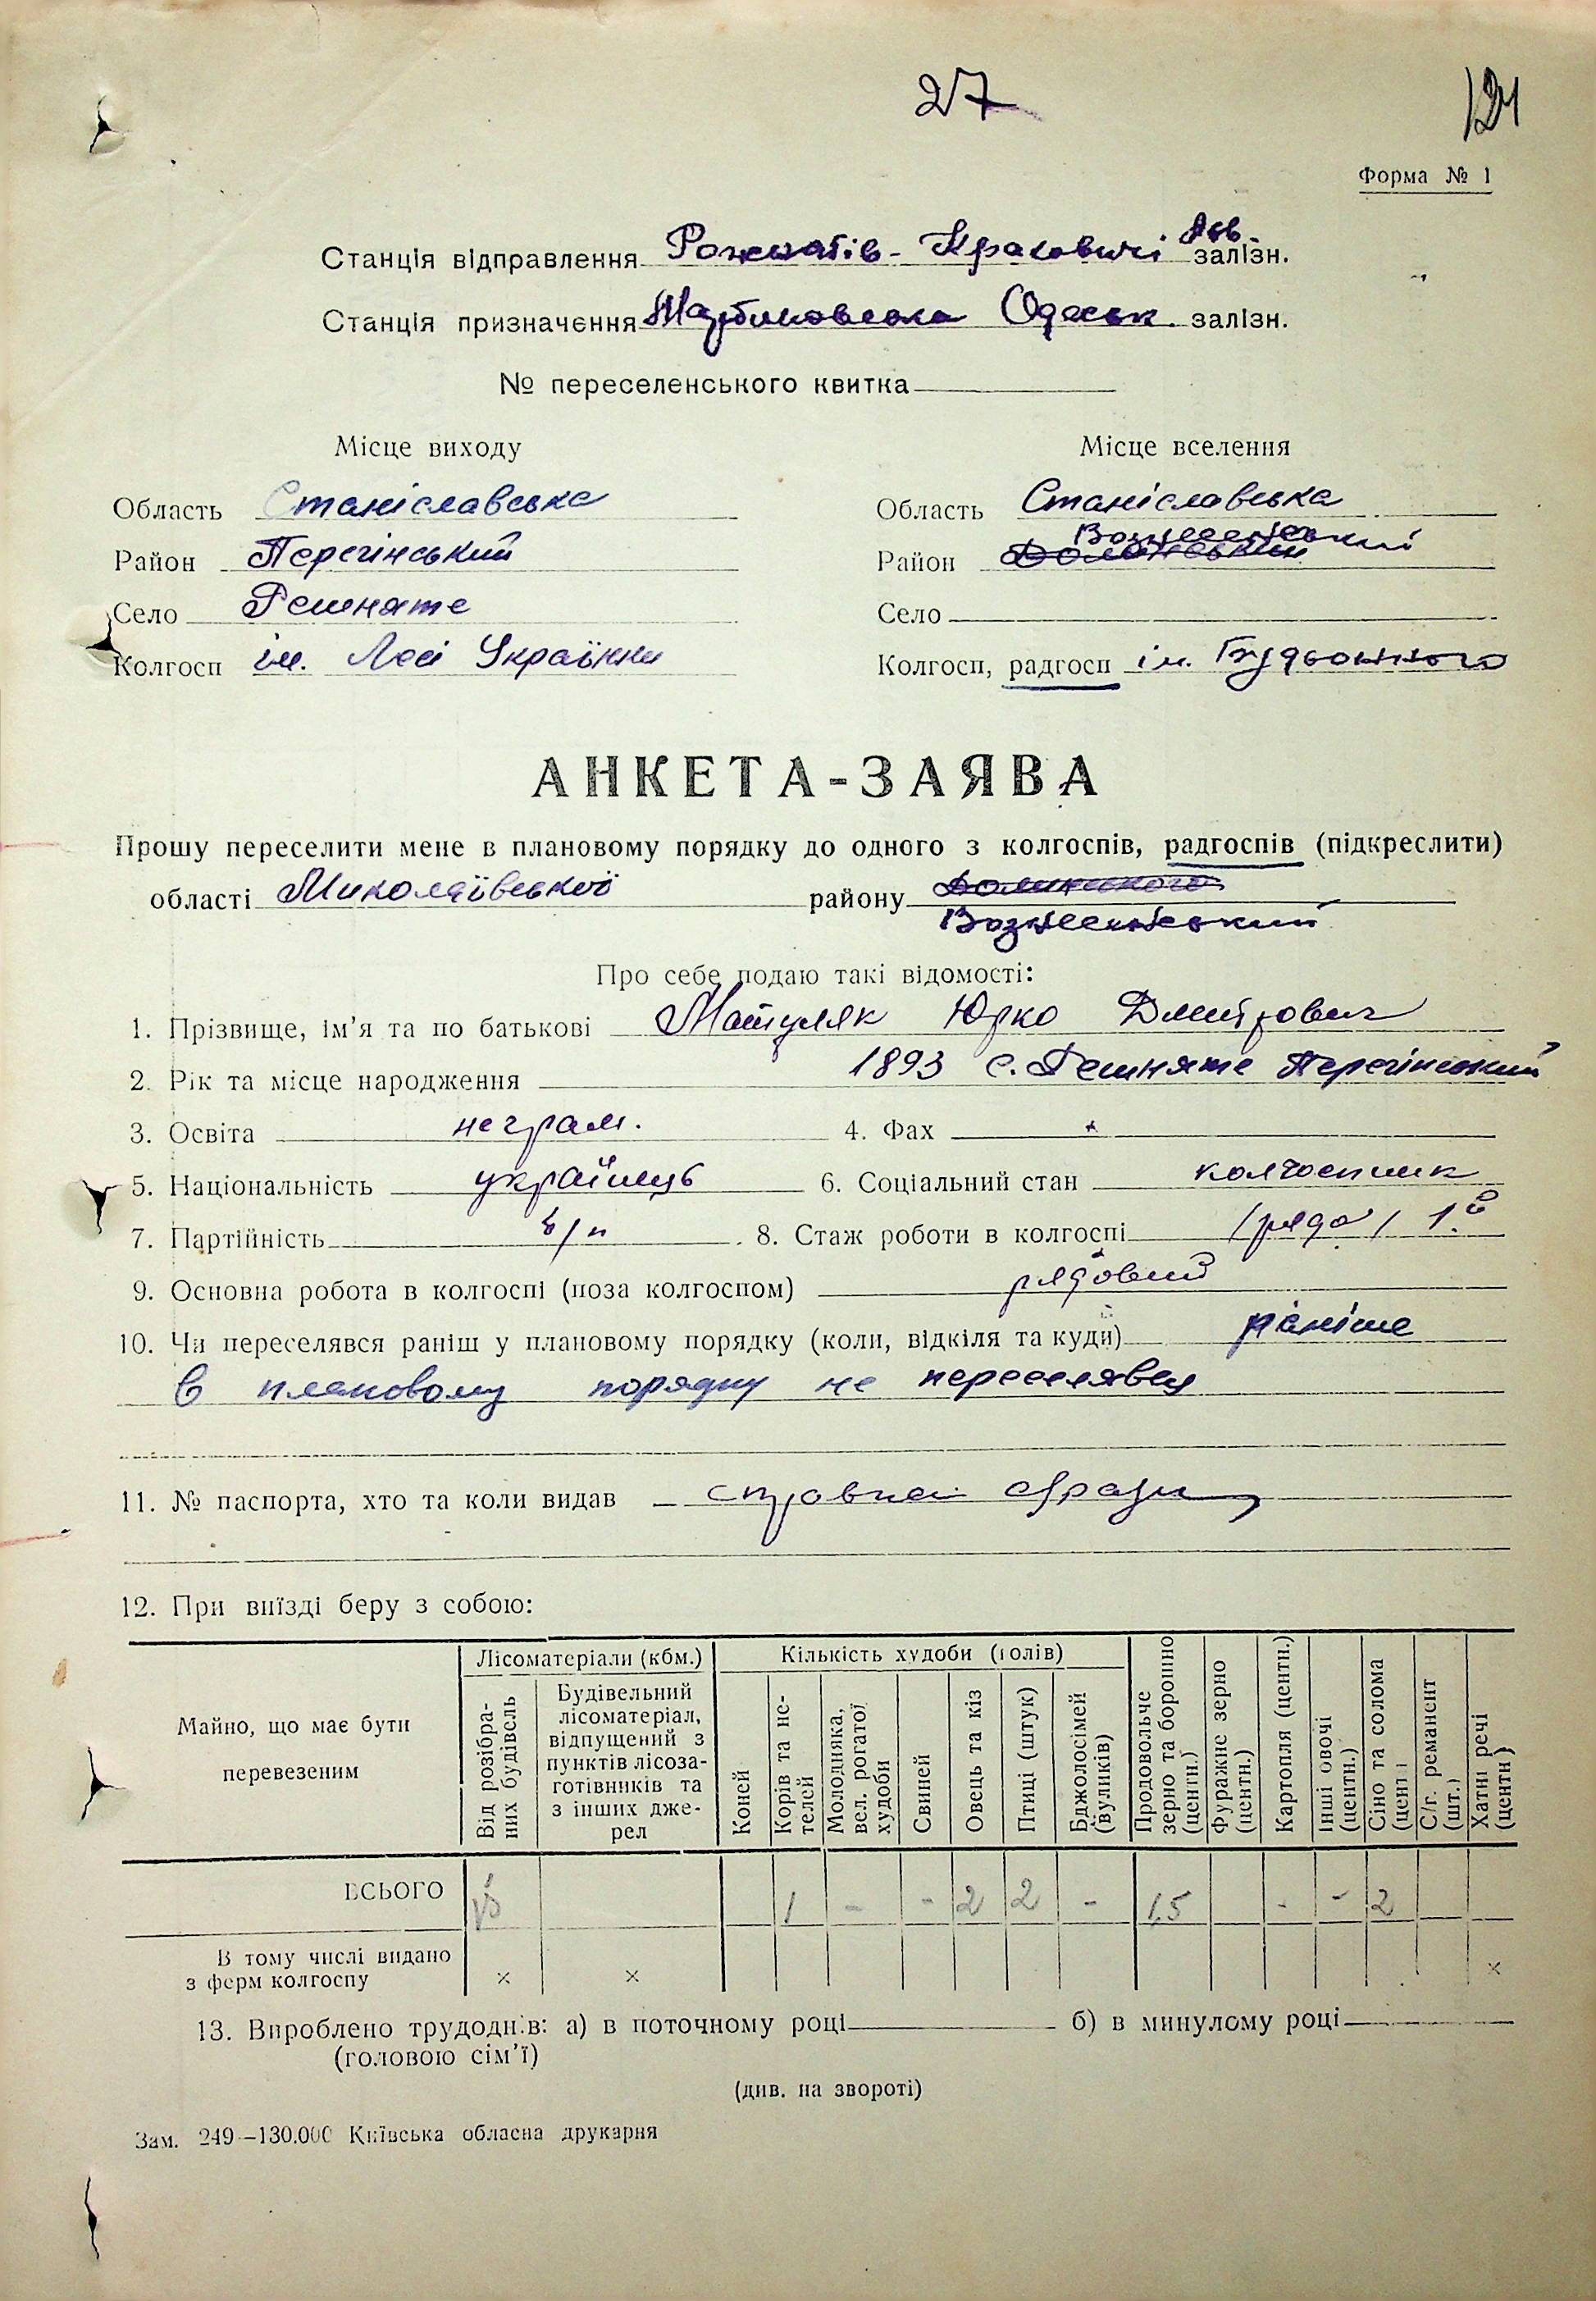 27
121
Форма № 1
Станція відправлення Рожнятів-Креховичі Льв. залізн.
Станція призначення Мартиновська Одеськ. залізн.
№ переселенського квитка
Місце виходу
Місце вселення
Область Станіславська
Область Станіславська
Вознесенський
Район Перегінський
Район
Село Рошняте
Село
Колгосп ім. Лесі Українки
Колгосп, радгосп ім. Будьонного
АНКЕТА-ЗАЯВА
Прошу переселити мене в плановому порядку до одного з колгоспів, радгоспів (підкреслити)
області Миколаївської району
Вознесенський
Про себе подаю такі відомості:
1. Прізвище, ім'я та по батькові Матуляк Юрко Дмитрович
2. Рік та місце народження 1893 с. Рошняте Перегінський
3. Освіта неграм.
4. Фах
5. Національність українець
6. Соціальний стан колгоспник
7. Партійність б/п
8. Стаж роботи в колгоспі
9. Основна робота в колгоспі (поза колгоспом) рядовий
10. Чи переселявся раніш у плановому порядку (коли, відкіля та куди) раніше
в плановому порядку не переселявся
11. № паспорта, хто та коли видав справка
12. При виїзді беру з собою:
Майно, що має бути перевезеним
Лісоматеріали (кбм.)
Кількість худоби (голів)
Від розібраних будівель
Будівельний лісоматеріал, відпущений з пунктів лісозаготівників та з інших джерел
Коней
Корів та нетелей
Молодняка, вел. рогатої худоби
Свиней
Овець та кіз
Птиці (штук)
Бджолосімей (вуликів)
Продовольче зерно та борошно (центн.)
Фуражне зерно (центн.)
Картопля (центн.)
Інші овочі (центн.)
Сіно та солома (центн.)
С/г. реманент (шт.)
Хатні речі (центн)
ВСЬОГО 1 - - 2 2 - 1,5 - - 2
В тому числі видано
з ферм колгоспу × × ×
13. Вироблено трудоднів: а) в поточному році б) в минулому році
(головою сім'ї)
(див. на звороті)
Зам. 249—130.000 Київська обласна друкарня